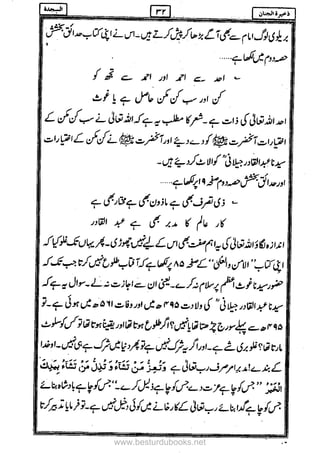 السجدة ٣٣ ذخیرۃ الجنان
بریلوی لوگ امام سے بھی آگے بڑھا کر پیش کرتے ہیں۔ اس نے اپنی کتاب حدائق بخشش
حصہ دوم میں لکھا ہے......
احد سے احمد اور احمد سے تجھ کو
کن اور سب کن مکن حاصل ہے یا غوث
احد اللہ تعالیٰ کی ذات ہے۔ شعر کا مطلب یہ ہے کہ اللہ تعالیٰ نے سب کن مکن کے
اختیارات آنحضرت ﷺ کو دے دیئے اور آنحضرت ﷺ نے کن مکن کے اختیارات
سیدنا عبد القادر جیلانیؒ کو الاٹ کر دیئے ہیں۔
اور حدائق بخشش حصہ دوم صفحہ ۱۹ پر لکھا ہے......
ذی تصرف بھی ہے ماذون بھی ہے مختار بھی ہے
کار عالم کا مدبر بھی ہے عبد القادر
اندازہ لگاؤ اللہ تعالیٰ کی اہم صفت بھی اس کے لیے نہیں چھوڑی۔ پھر یہاں تک غلو کیا کہ
اپنی کتاب "الامن والعلیٰ" کے صفحہ ۸۵ پر لکھا ہے کہ آفتاب طلوع نہیں کرتا جب تک کہ
حضور سیدنا غوث اعظم پر سلام نہ کرے۔ یعنی ان سے اجازت نہ لے۔ سوال یہ ہے کہ
سیدنا عبد القادر جیلانیؒ کی ولادت ۴۹۵ھ میں اور وفات ۵۶۱ھ میں ہوئی ہے۔ تو
۴۹۵ھ سے پہلے سورج چڑھتا تھا یا نہیں؟ اگر طلوع ہوتا تھا اور یقیناً ہوتا تھا تو کس کو سلوٹ
مارتا تھا؟ غلو بری شے ہے۔ اور اگر یہ شرک نہیں ہے تو پھر دنیا میں شرک ہے ہی نہیں۔ او خدا
کے بندے! مدبر امر صرف رب تعالیٰ ہے وَتُعِزُّ مَنْ تَشَاءُ وَتُذِلُّ مَنْ تَشَاءُ بِيَدِكَ
الْخَيْرُ "جس کو چاہے عزت دے جس کو چاہے ذلیل کرے۔" جس کو چاہے بادشاہ بنائے
جس کو چاہے گدا بنائے رب تعالیٰ کے کارخانے میں کوئی دخیل نہیں ہے۔ تو فرمایا تدبیر کرتا
www.besturdubooks.net